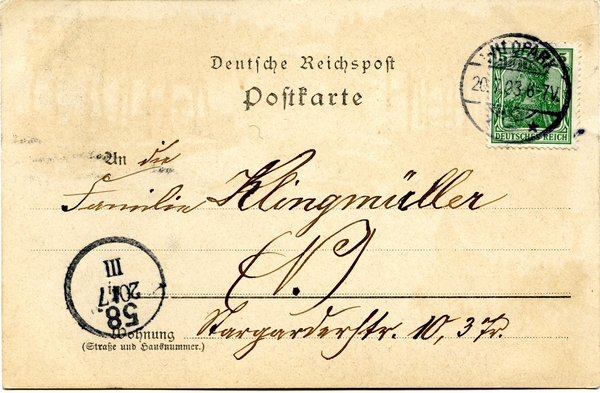 Deutsche Reichspost
Postkarte
DEUTSCHES REICH
An die
Familie Klingmüller
N.
58.
20
7
III
Wohnung
(Straße und Hausnummer.)
Stargarderstr. 10, 3 Tr.